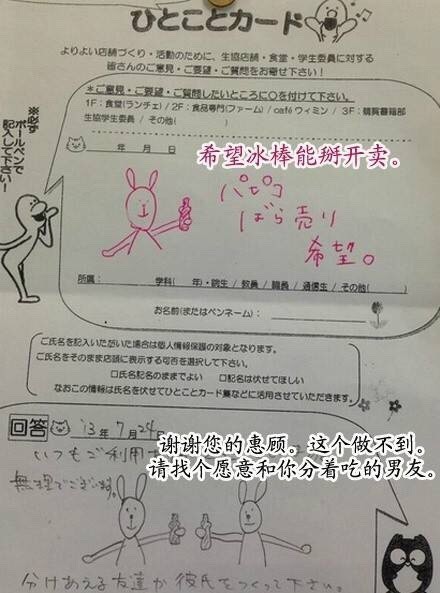 ひとことカード
よりよい店舗づくり・活動のために、生協店舗・食堂・学生委員に対する
皆さんのご意見・ご要望・ご質問をお寄せ下さい!
*ご意見・ご要望・ご質問したいところに○を付けて下さい。
1F:食堂(ランチェ) / 2F:食品専門(ファーム) / café ヴィミン / 3F:購買書籍部
生協学生委員 / その他( )
※必ず
ボールペンで
記入して下さい!
年 月 日
希望冰棒能掰开卖。
パピコ
ばら売り
希望。
所属: 学科( 年)・院生 / 教員 / 職員 / 通信生 / その他( )
お名前(またはペンネーム):
ご氏名を記入いただいた場合は個人情報保護の対象となります。
ご氏名をそのまま店頭に表示する可否を選択して下さい。
□氏名記名のままでよい □記名は伏せてほしい
なおこの情報は氏名を伏せてひとことカード集などに活用させていただきます。
回答 '13年7月24日
谢谢您的惠顾。这个做不到。
请找个愿意和你分着吃的男友。
いつもご利用
無理でございます。
分けあえる友達か彼氏をつくって下さい。